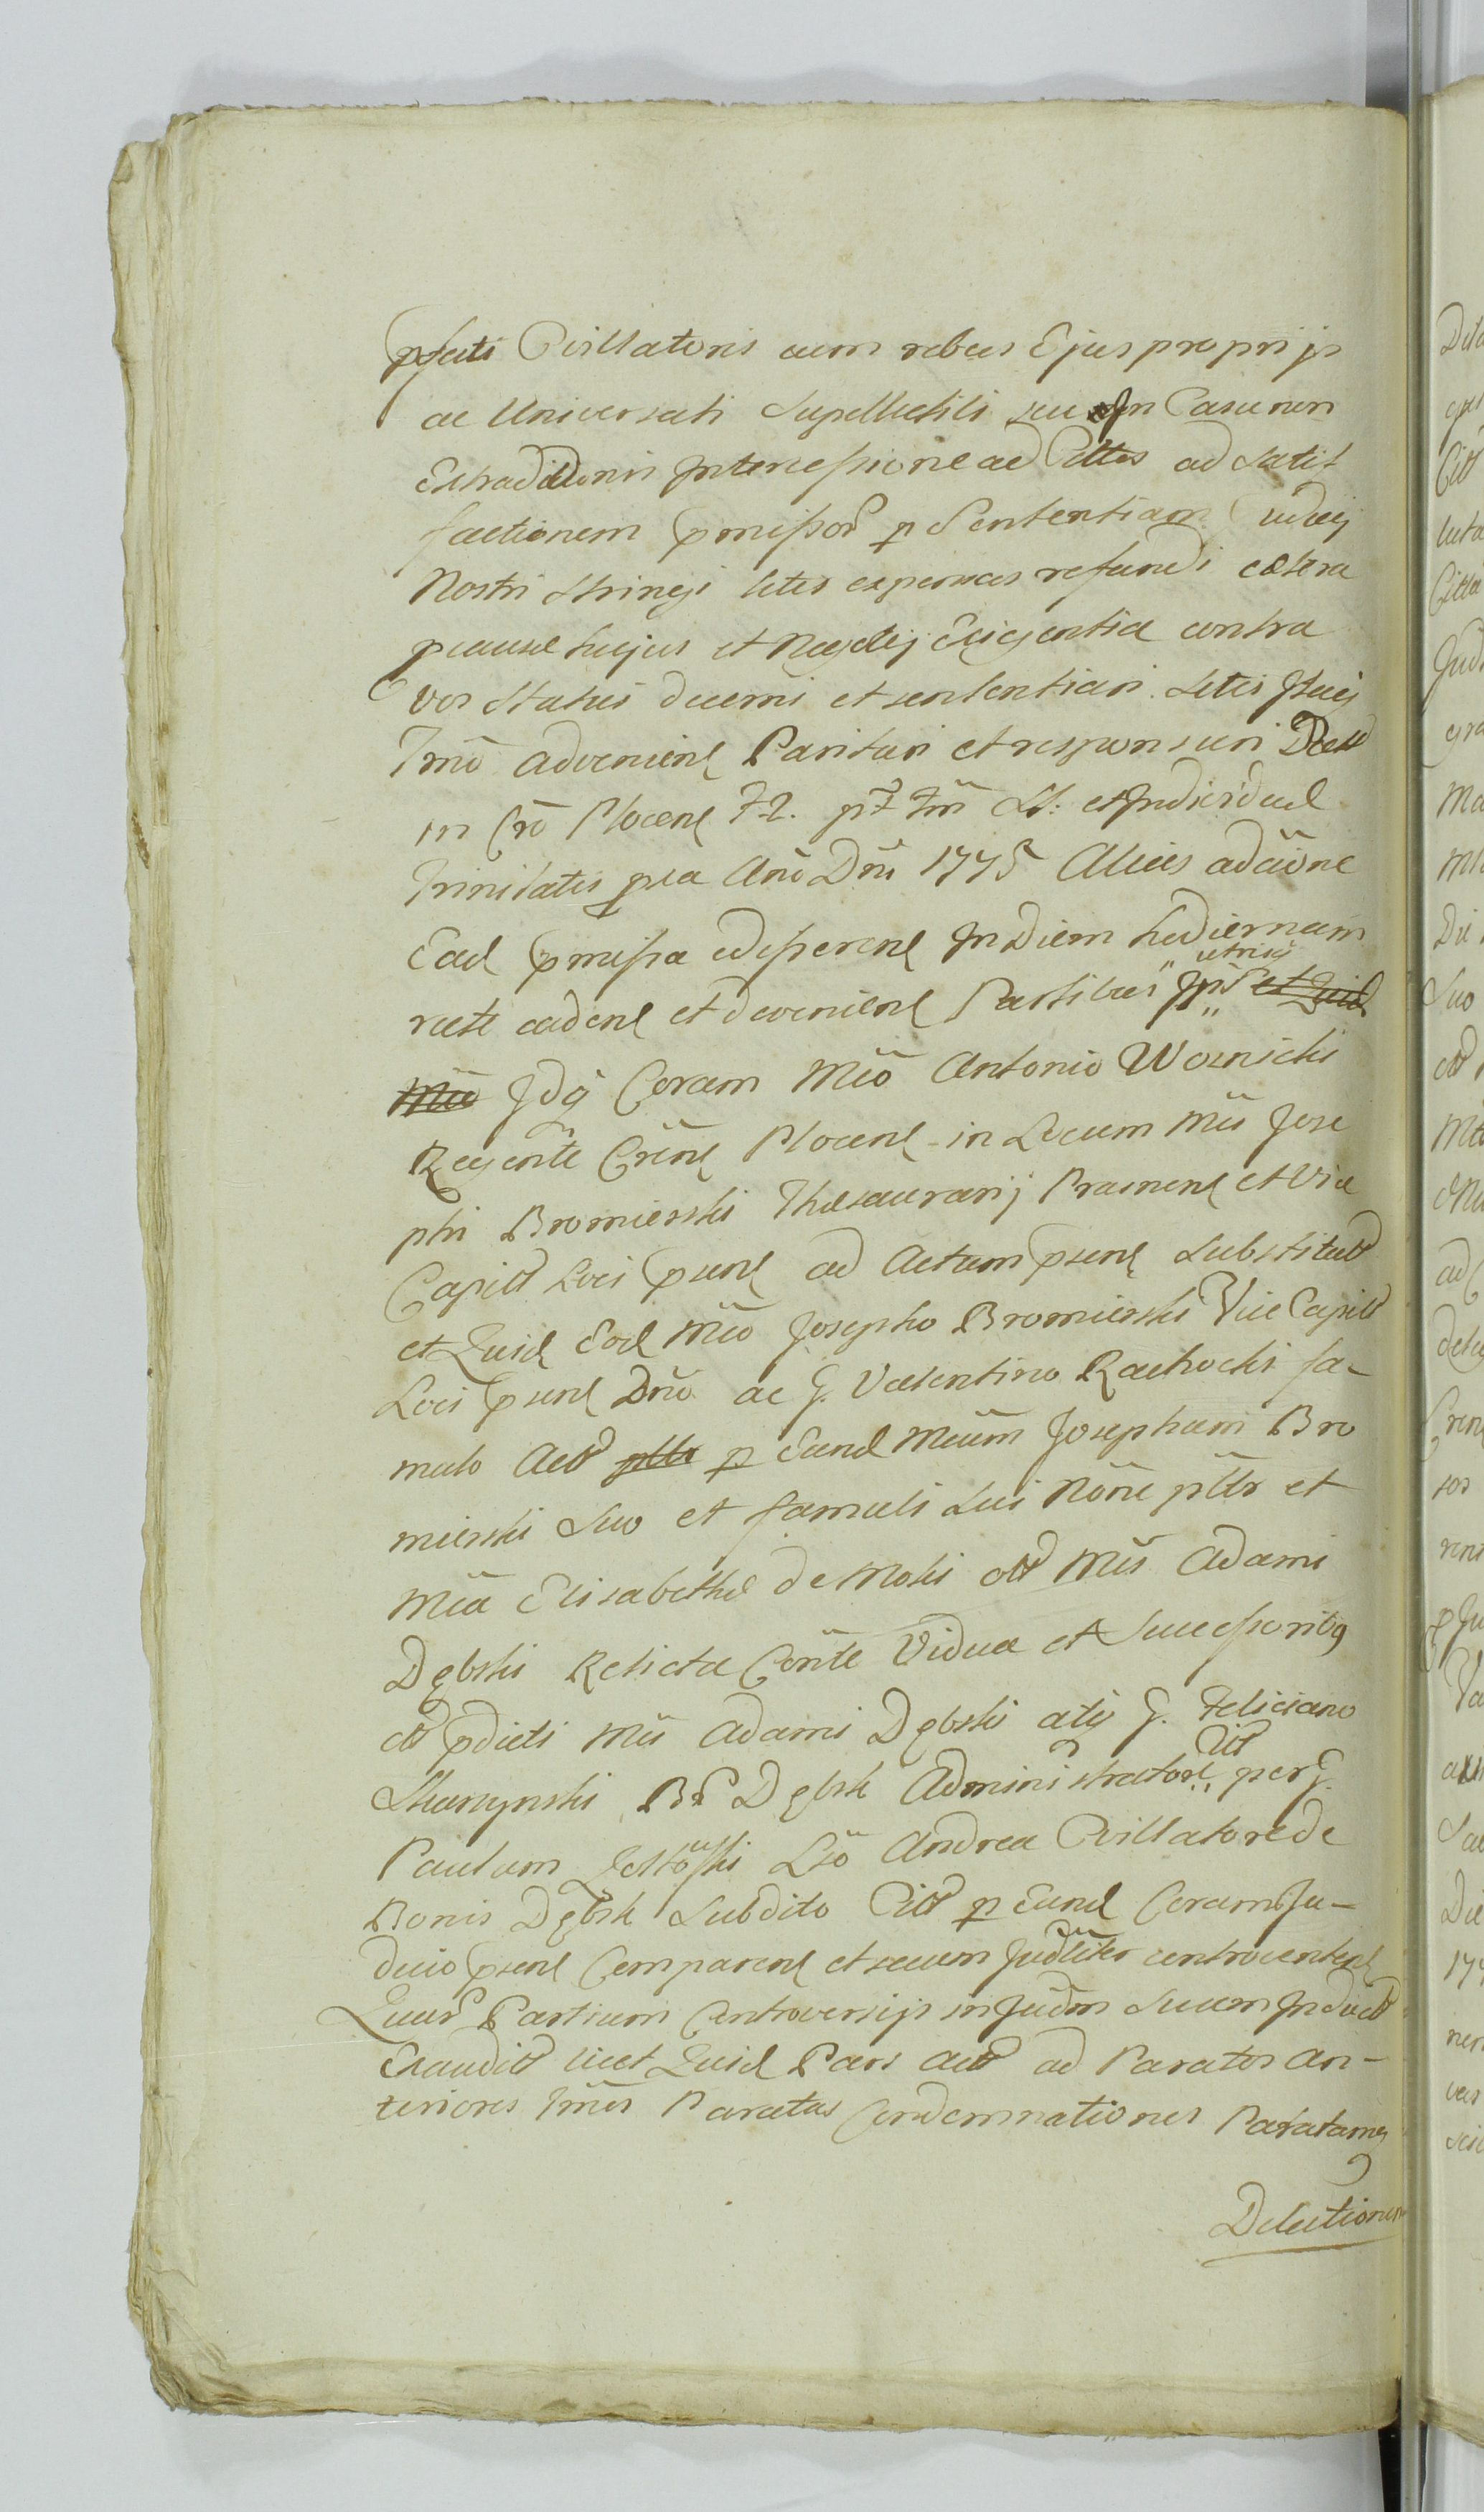 pfati Ovillatoris cum rebus Ejus proprijs
ac Universali Supellectili seu in Casu non
Extraditionis Intercessione ad Cittos ad Satis
factionem pmissor p Sententiam Judcij
Nostri Stringi litis expensas refundi cætera
p causæ hujus et Negotij Exigentia contra
vos Statui decerni et sententiari. Sitis Itaq
Tmo adveniene Parituri et responsuri Datt
in Cro Plocene F2. pt Fm St: et Individuæ
Trinitatis pxa Ano Dni 1775 Alias actione
Ead pmissa ed In Diem hodiernam
recte cadene et deveniene Partibus utrisq Ips et Quid
Mco Jdq Coram Mco Antonio Woznicki
Regente Crens Plocene in Locum Mci Jose
phi Bromierski Thesaurarij Prasnene et Vice
Capitt Loci psene ad Actum psene Substitutt
et Quid Eod Mco Josepho Bromierski Vice Capitt
Loci psene Dno ac G. Valentino Rachocki fa-
mulo Actt pttr p Eund Mcum Josephum Bro
mierski Suo et famuli Sui Nome pttr et
Mca Elisabetha de Moki ott Mci Adami
Dębski Relicta Conte Vidua et Successoribq
ott pdicti Mci Adami Dębski atq G. Feliciano
Skarzynski Br Dębsk Administratore Citt per G.
Paulum Lsō Andrea Ovillatore de
Bonis Dębsk Subdito Citt p Eund Coram Ju-
dicio psene Comparene et secum Judliter controvertene
Quar Partium Controversijs in Judm Suum Inductt
Exauditt licet Quid Pars Actt ad Paratos an-
teriores Tmos Paratas Condemnationes Paratamq
Delectionem